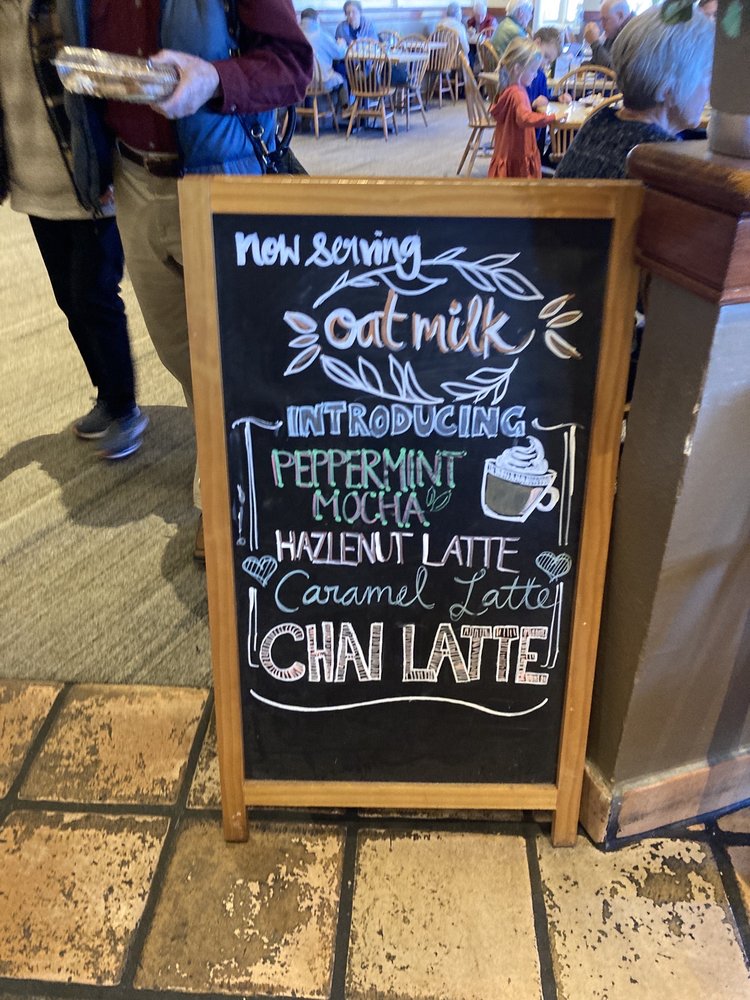 now serving
oat milk
INTRODUCING
PEPPERMINT
MOCHA
HAZLENUT LATTE
Caramel Latte
CHAI LATTE